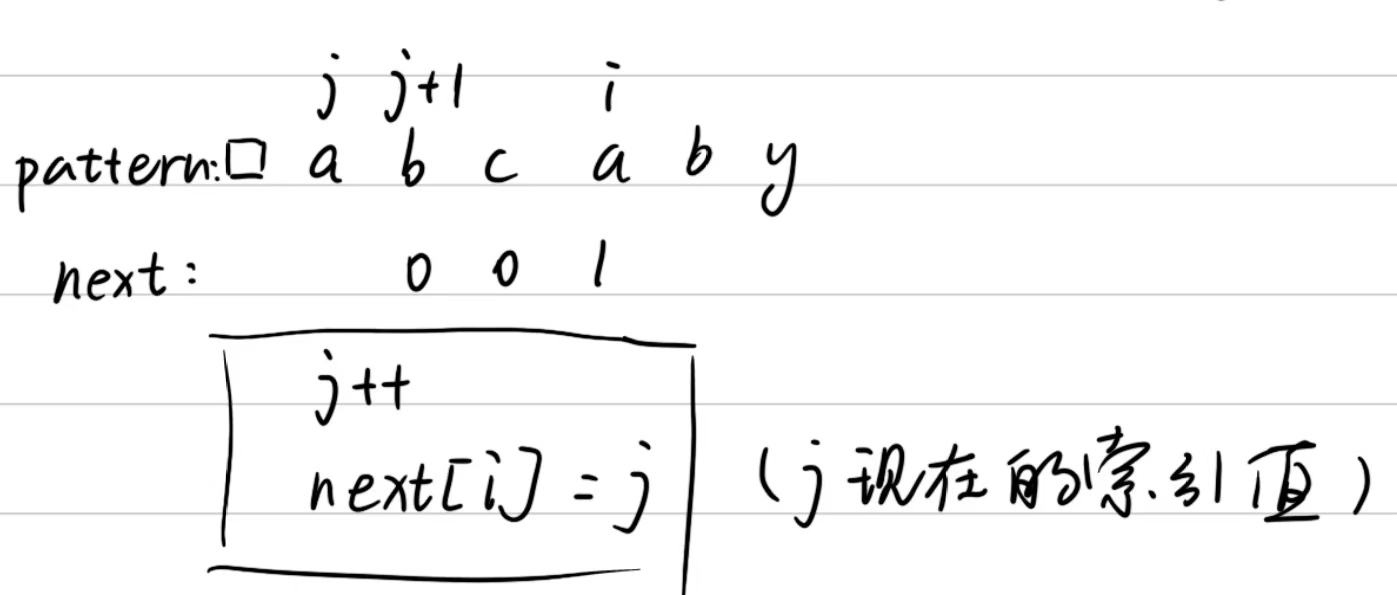 j j+1 i
pattern:□ a b c a b y
next: 0 0 1
j++
next[i]=j (j现在的索引值)